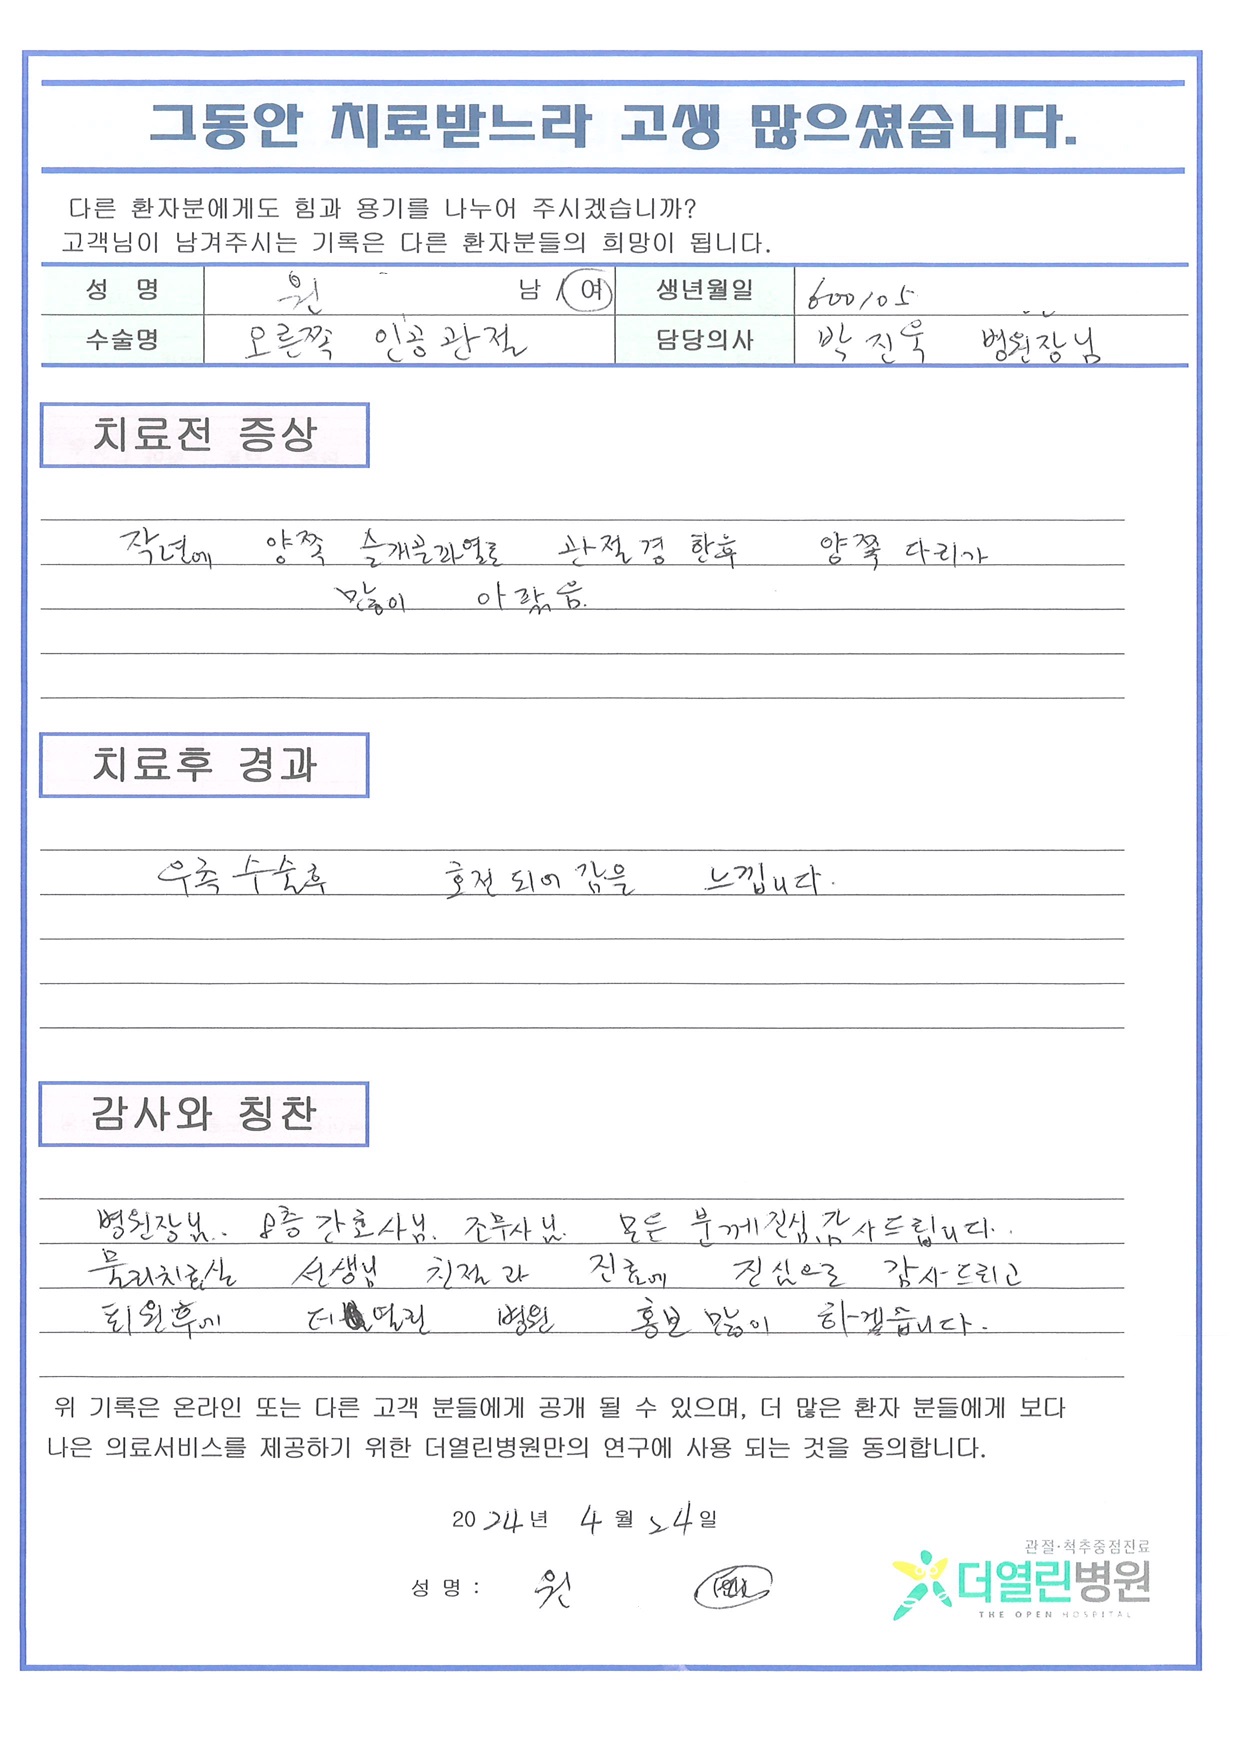 그동안 치료받느라 고생 많으셨습니다.
다른 환자분에게도 힘과 용기를 나누어 주시겠습니까?
고객님이 남겨주시는 기록은 다른 환자분들의 희망이 됩니다.
성 명 원 남 / 여 생년월일 600105
수술명 오른쪽 인공관절 담당의사 박진욱 병원장님
치료전 증상
작년에 양쪽 슬개골파열로 관절경 한후 양쪽 다리가
많이 아팠음.
치료후 경과
우측 수술후 호전되어 감을 느낍니다.
감사와 칭찬
병원장님.. 8층 간호사님. 조무사님. 모든 분께 진심 감사드립니다.
물리치료실 선생님 친절과 진료에 진심으로 감사드리고
퇴원후에 더열린 병원 홍보 많이 하겠습니다.
위 기록은 온라인 또는 다른 고객 분들에게 공개 될 수 있으며, 더 많은 환자 분들에게 보다
나은 의료서비스를 제공하기 위한 더열린병원만의 연구에 사용 되는 것을 동의합니다.
2024년 4월 24일
성 명 : 원
관절·척추중점진료
더열린병원
THE OPEN HOSPITAL